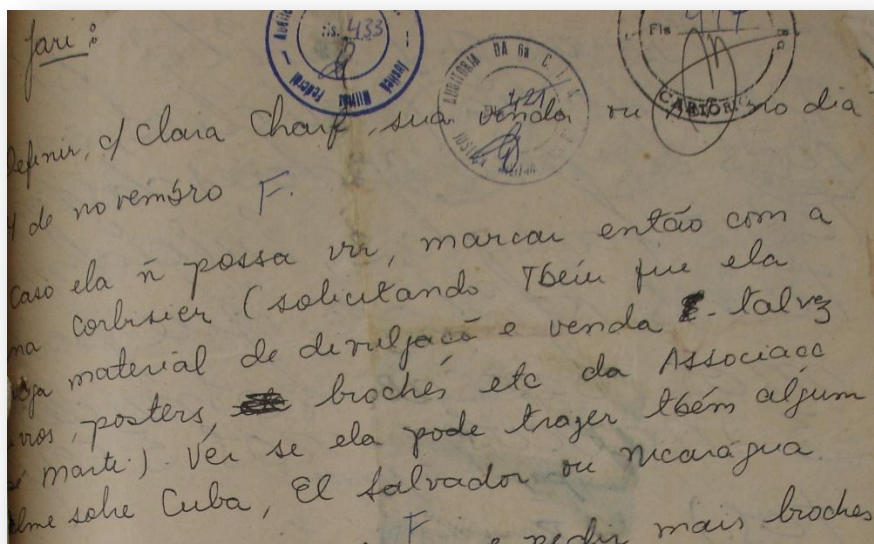 Jari:
Fls. 433
Justiça Militar Federal
AUDITORIA DA 6a C.J.M.
421
Fls
CARTÓRIO
definir, c/ Clara Charf, sua vinda ou no dia
de novembro F.
Caso ela ñ possa vir, marcar então com a
Corbisier (solicitando Tbém que ela
material de divulgaçã e venda - talvez
posters, brochés etc da Associacc
marti.) Ver se ela pode trazer tbém algum
sobre Cuba, El Salvador ou Nicarágua
F e pedir mais broches